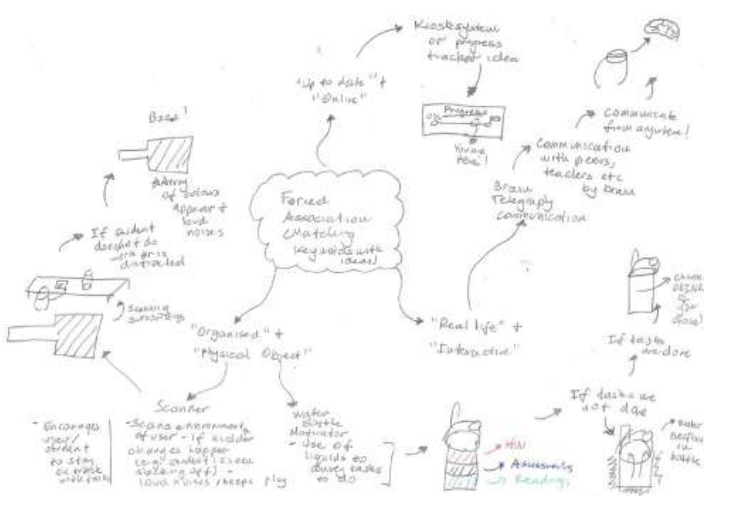 Kiosk system
or progress
tracker idea
"Up to date" +
"Online"
Progress
0%
You are
Here!
Communicate
from anywhere!
Communication
with peers,
teachers etc
by brain
Brain
Telegraphy
communication
Forced
Association
(Matching
keywords with
ideas)
of colours
appear +
loud
noises
If student
does not do
distracted
Scanning
surroundings
"Organised" +
"Physical Object"
"Real life" +
"Interactive"
If tasks
are done
If tasks are
not done
water
in
bottle
Scanner
- Encourages
user/
student
to stay
on track
with tasks
- Scans environment
of user - if sudden
changes happen
(e.g. student is seen
slacking off) -
loud noises
Water
Bottle
Motivator
- Use of
liquids to
tasks
to do
HW
Assessments
Readings